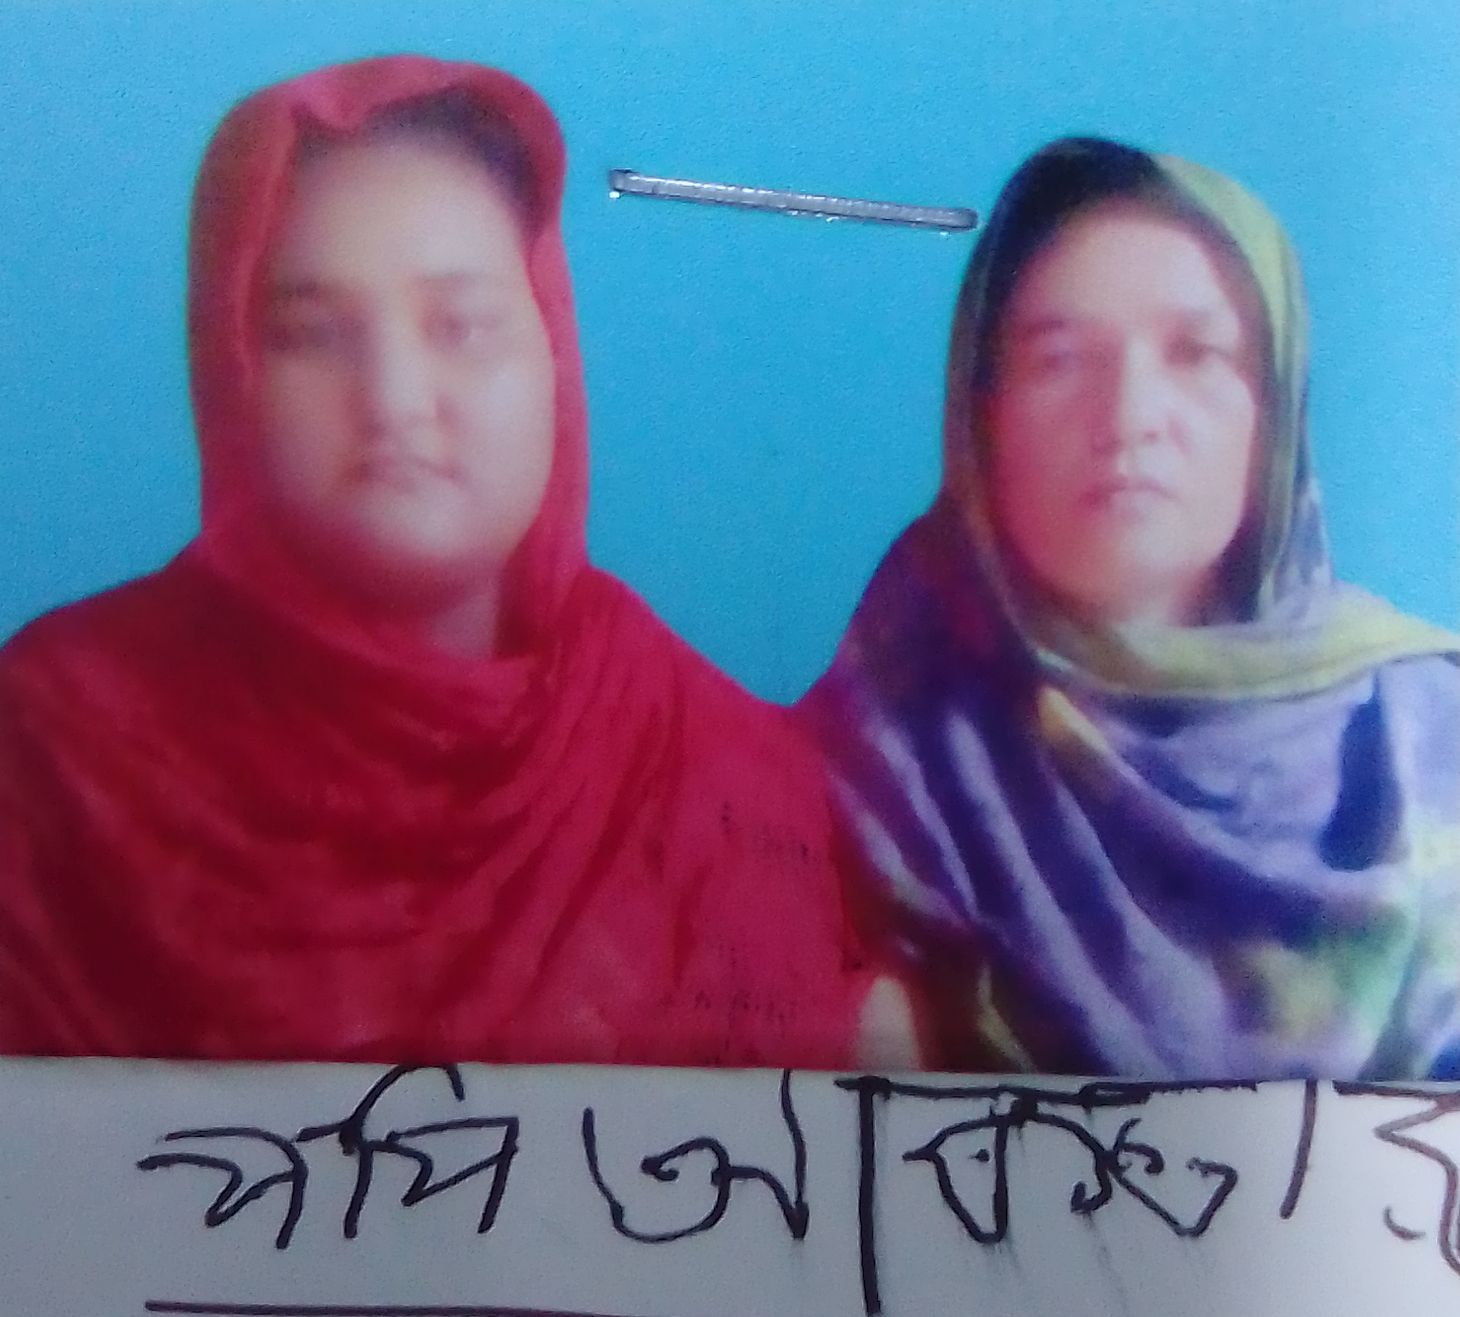 পপি আকতার